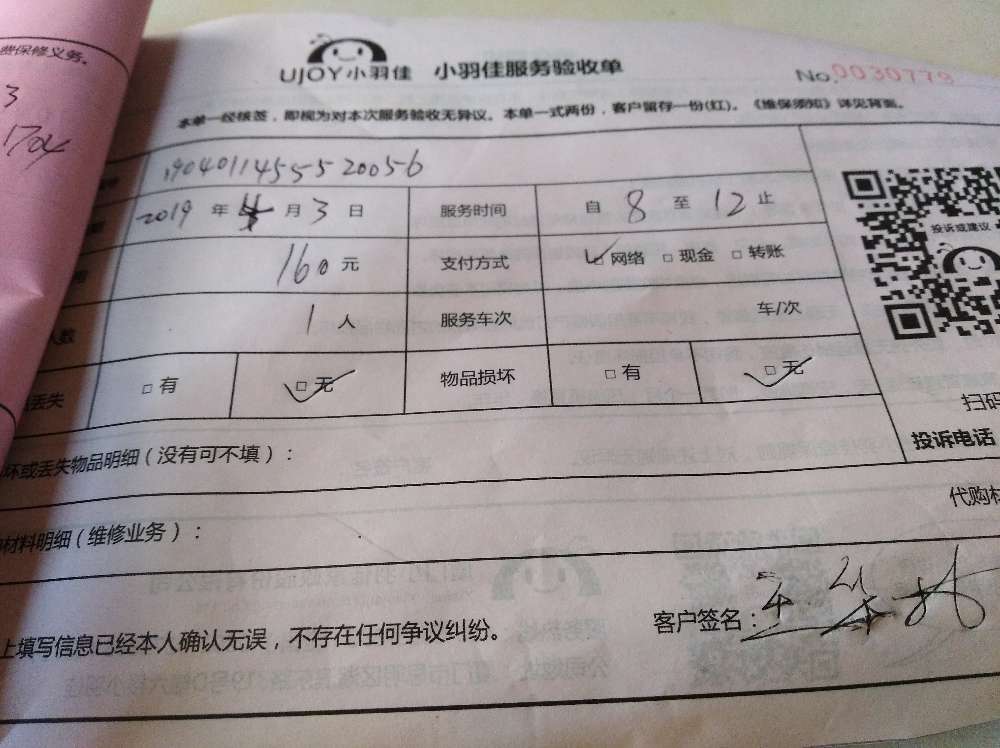 费保修义务。
3
1704
UJOY小羽佳 小羽佳服务验收单
No.0030779
本单一经核签，即视为对本次服务验收无异议。本单一式两份，客户留存一份(红)。《维保须知》详见背面。
1904011455520056
2019 年 4 月 3 日 服务时间 自 8 至 12 止
投诉或建议
160 元 支付方式 ☑网络 □现金 □转账
人数 1 人 服务车次 车/次
丢失 □有 ☑无 物品损坏 □有 ☑无
扫码
投诉电话
坏或丢失物品明细（没有可不填）：
代购材
材料明细（维修业务）：
上填写信息已经本人确认无误，不存在任何争议纠纷。 客户签名：